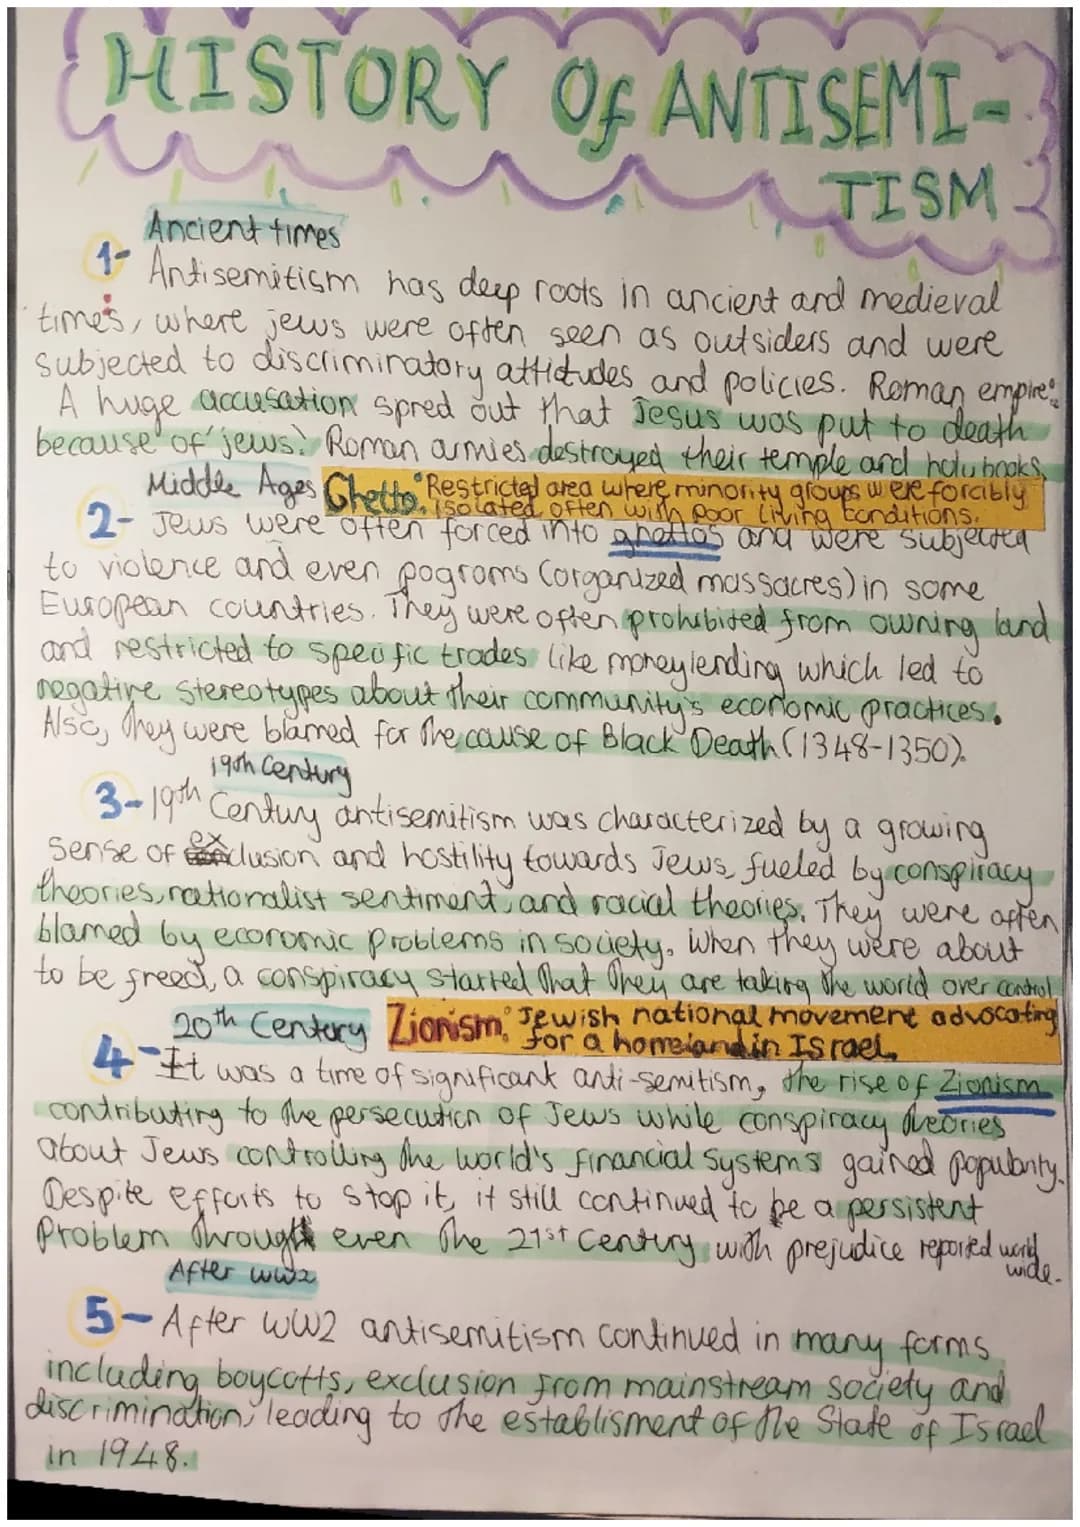 HISTORY Of ANTISEMI-
TISM
Ancient times
1- Antisemitism has deep roots in ancient and medieval
times, where jews were often seen as outsiders and were
subjected to discriminatory attidudes and policies. Roman empire:
A huge accusation spred out that Jesus was put to death
because of jews. Roman armies destroyed their temple and holy books.
Middle Ages
Ghetto: Restricted area where minority groups were forcibly
isolated often with poor living conditions.
2- Jews were often forced into ghettos and were subjected
to violence and even pogroms (organized massacres) in some
European countries. They were often prohibited from owning land
and restricted to specific trades like moneylending which led to
negative stereotypes about their community's economic practices.
Also, they were blamed for the cause of Black Death (1348-1350).
19th Century
3- 19th Century antisemitism was characterized by a growing
sense of exclusion and hostility towards Jews, fueled by conspiracy
theories, nationalist sentiment, and racial theories. They were often
blamed by economic problems in society. When they were about
to be freed, a conspiracy started that they are taking the world over control
20th Century
Zionism: Jewish national movement advocating
for a homeland in Israel.
4- It was a time of significant anti-semitism, the rise of Zionism
contributing to the persecution of Jews while conspiracy theories
about Jews controlling the world's financial systems gained popularity.
Despite efforts to stop it, it still continued to be a persistent
problem through even the 21st Century with prejudice reported world
wide.
After WW2
5- After WW2 antisemitism continued in many forms
including boycotts, exclusion from mainstream society and
discrimination, leading to the establisment of the State of Israel
in 1948.